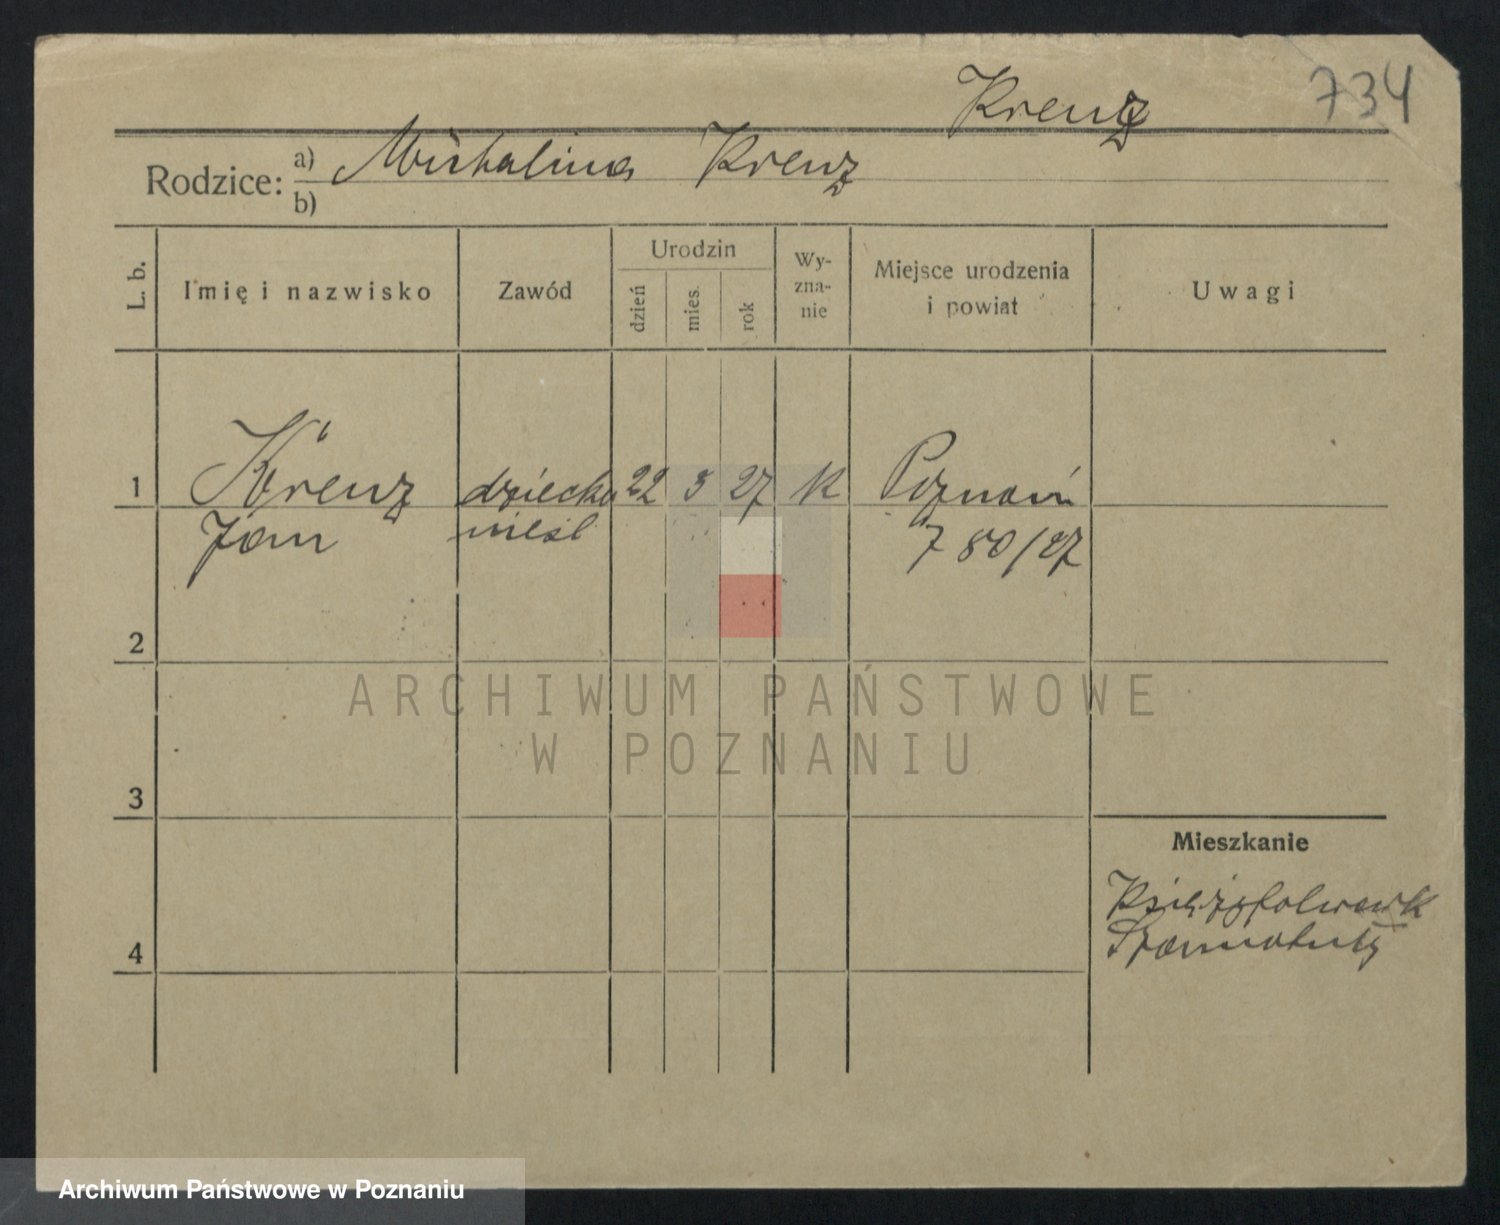 Krenz 734
Rodzice: a) Michalina Krenz
b)
L. b. Imię i nazwisko Zawód Urodzin dzień mies. rok Wy-zna-nie Miejsce urodzenia i powiat Uwagi
1 Krenz dziecko 22 3 27 k Poznań
Jan nieśl 780/27
2
ARCHIWUM PAŃSTWOWE
W POZNANIU
3
Mieszkanie
Księżyfolwark
Szamotuły
4
Archiwum Państwowe w Poznaniu